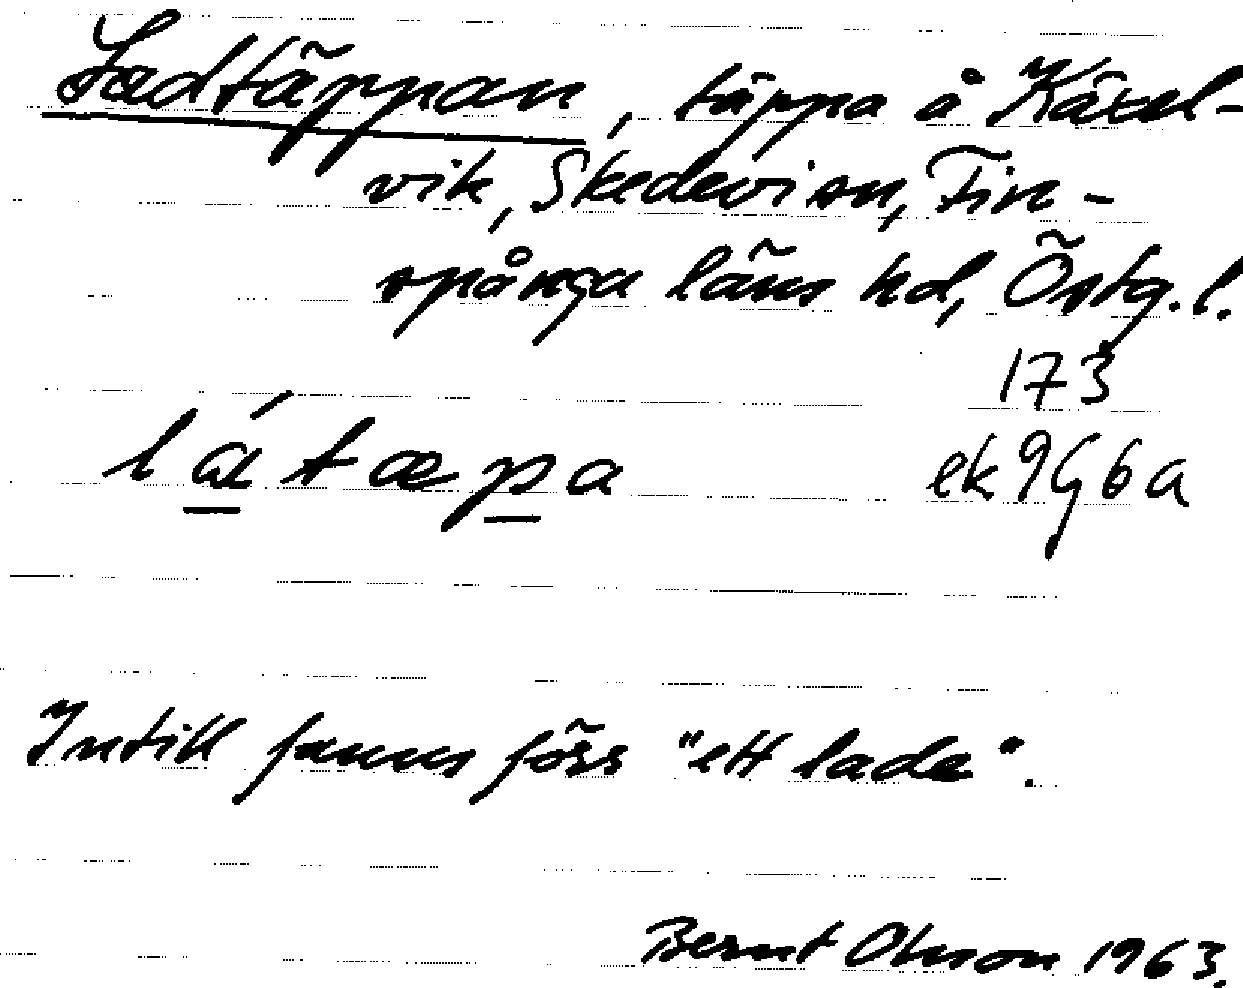 Ladtäppan, täppa å Käxel-
vik, Skedevi sn, Fin-
spånga läns hd, Östg.l.
173
látæpa ek 9G6a
Intill fanns förr "ett lade".
Bernt Olsson 1963.